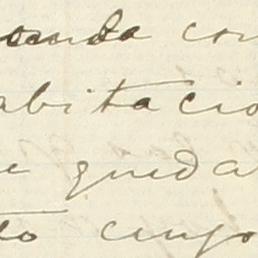 onda con
abitacio
e queda
to cuyo